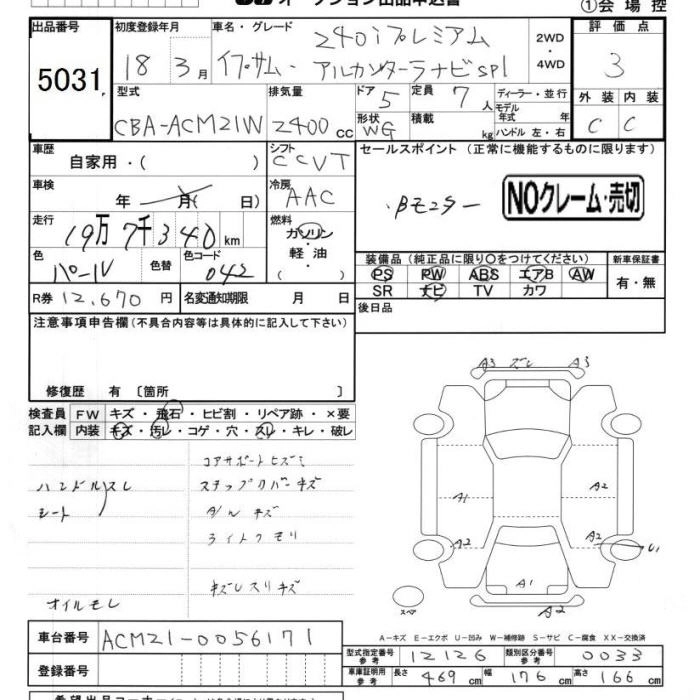 オークション出品申込書
①会場控
出品番号
5031
初度登録年月
18 3月
車名・グレード
イプサム・
240iプレミアム
アルカンターラナビsp1
2WD
・
4WD
評価点
3
外装 内装
C C
型式
CBA-ACM21W
排気量
2400 CC
ドア 5
形状 WG
定員 7人
積載 kg
ディーラー・並行
モデル年式 年
ハンドル 左・右
車歴
自家用・( )
シフト
CCVT
セールスポイント (正常に機能するものに限ります)
・Bモニター
NOクレーム・売切
車検
年 月( 日)
冷房
AAC
走行
19万7千340km
燃料
ガソリン
・
軽油
・
色
パール
色替
色コード
042
装備品 (純正品に限り〇をつけてください)
PS PW ABS エアB AW
SR ナビ TV カワ
新車保証書
有・無
R券 12,670 円
名変通知期限 月 日
後日品
注意事項申告欄(不具合内容等は具体的に記入して下さい)
修復歴 有 〔箇所 〕
検査員記入欄
FW キズ・飛石・ヒビ割・リペア跡・×要
内装 キズ・汚レ・コゲ・穴・スレ・キレ・破レ
コアサポートヒズミ
ハンドルスレ
ステップカバーキズ
シート
A/Wキズ
ライトクモリ
キズレスリキズ
オイルモレ
A3 ズレ A3
A1
A2
A2
A2
U1
A1
A2
スペア
A−キズ E−エクボ U−凹み W−補修跡 S−サビ C−腐食 XX−交換済
車台番号 ACM21-0056171
登録番号
型式指定番号
参考
12126
類別区分番号
参考
0033
車庫証明用
参考
長さ 469 cm
幅 176 cm
高さ 166 cm
希望出品コーナー